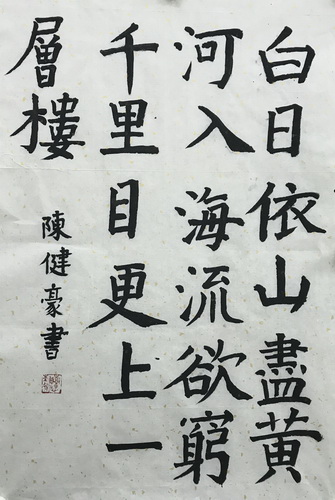 白日依山盡黃
河入海流欲窮
千里目更上一
層樓
陳健豪書